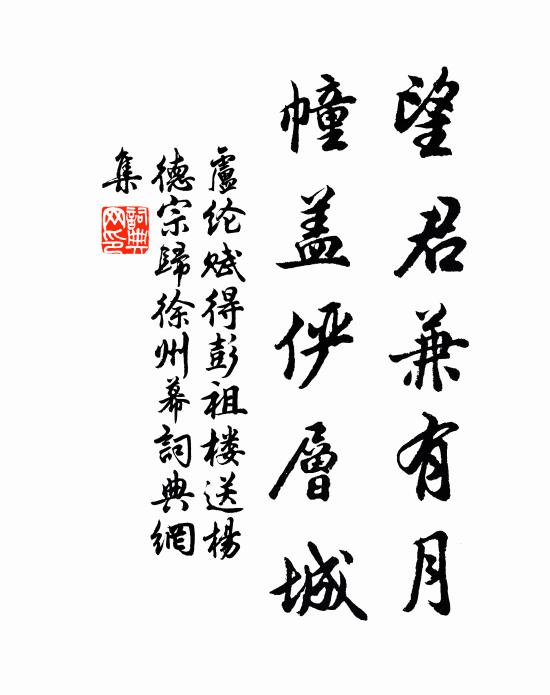 望君兼有月
幢盖俨層城
盧纶赋得彭祖楼送楊
德宗歸徐州幕詞典網
集
詞典网印